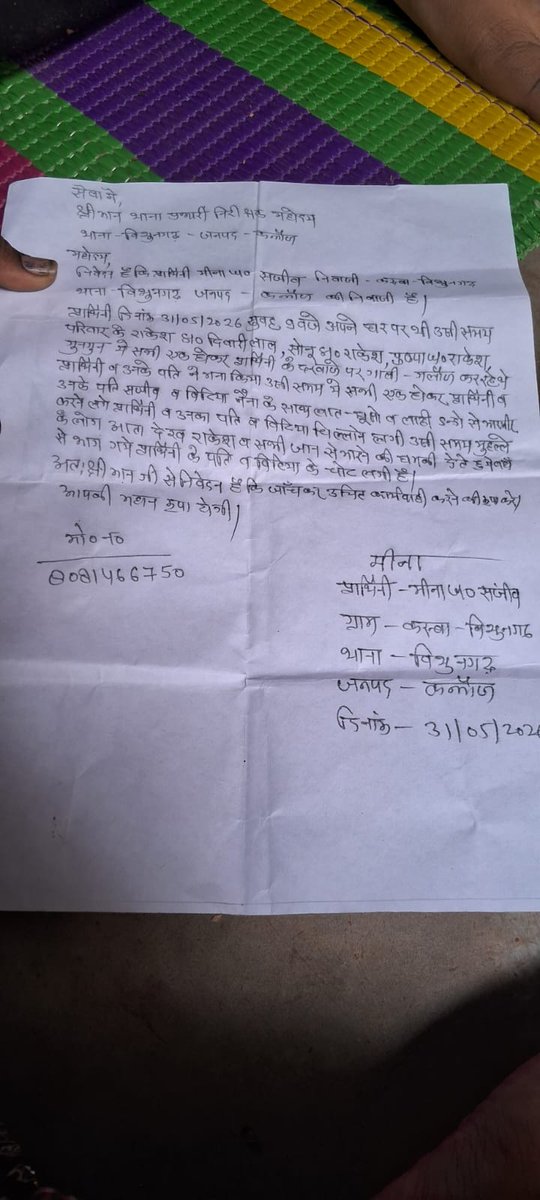 सेवा में,
श्रीमान थाना प्रभारी निरीक्षक महोदय
थाना - विशुनगढ़ - जनपद - कन्नौज
महोदय,
निवेदन है कि प्रार्थिनी मीना w/o संजीव निवासी - कस्बा - विशुनगढ़
थाना - विशुनगढ़ जनपद - कन्नौज की निवासी है।
प्रार्थिनी दिनांक 31/05/2026 सुवह 9 वजे अपने घर पर थी उसी समय
परिवार के राकेश s/o लाल, सोनू s/o राकेश, w/o राकेश,
ये सभी एक होकर प्रार्थिनी के दरवाजे पर गाली - गलौज कर रहे थे
प्रार्थिनी व उनके पति ने मना किया उसी समय ये सभी एक होकर प्रार्थिनी व
उनके पति संजीव व विटिया के साथ लात - घूसो व लाठी डन्डो से मारपीट
करने लगे प्रार्थिनी व उनका पति व विटिया चिल्लाने लगी उसी समय मुहल्ले
के लोग आता देख राकेश व सभी जान से मारने की धमकी देते हुये
से भाग गये प्रार्थिनी के पति व विटिया के चोट लगी है।
अतः श्रीमान जी से निवेदन है कि जाँच कर उचित कार्यवाही करने की कृपा करे।
आपकी महान कृपा होगी।
मो० न०
8081466750
मीना
प्रार्थिनी - मीना w/o संजीव
ग्राम - कस्बा - विशुनगढ़
थाना - विशुनगढ़
जनपद - कन्नौज
दिनांक - 31/05/202